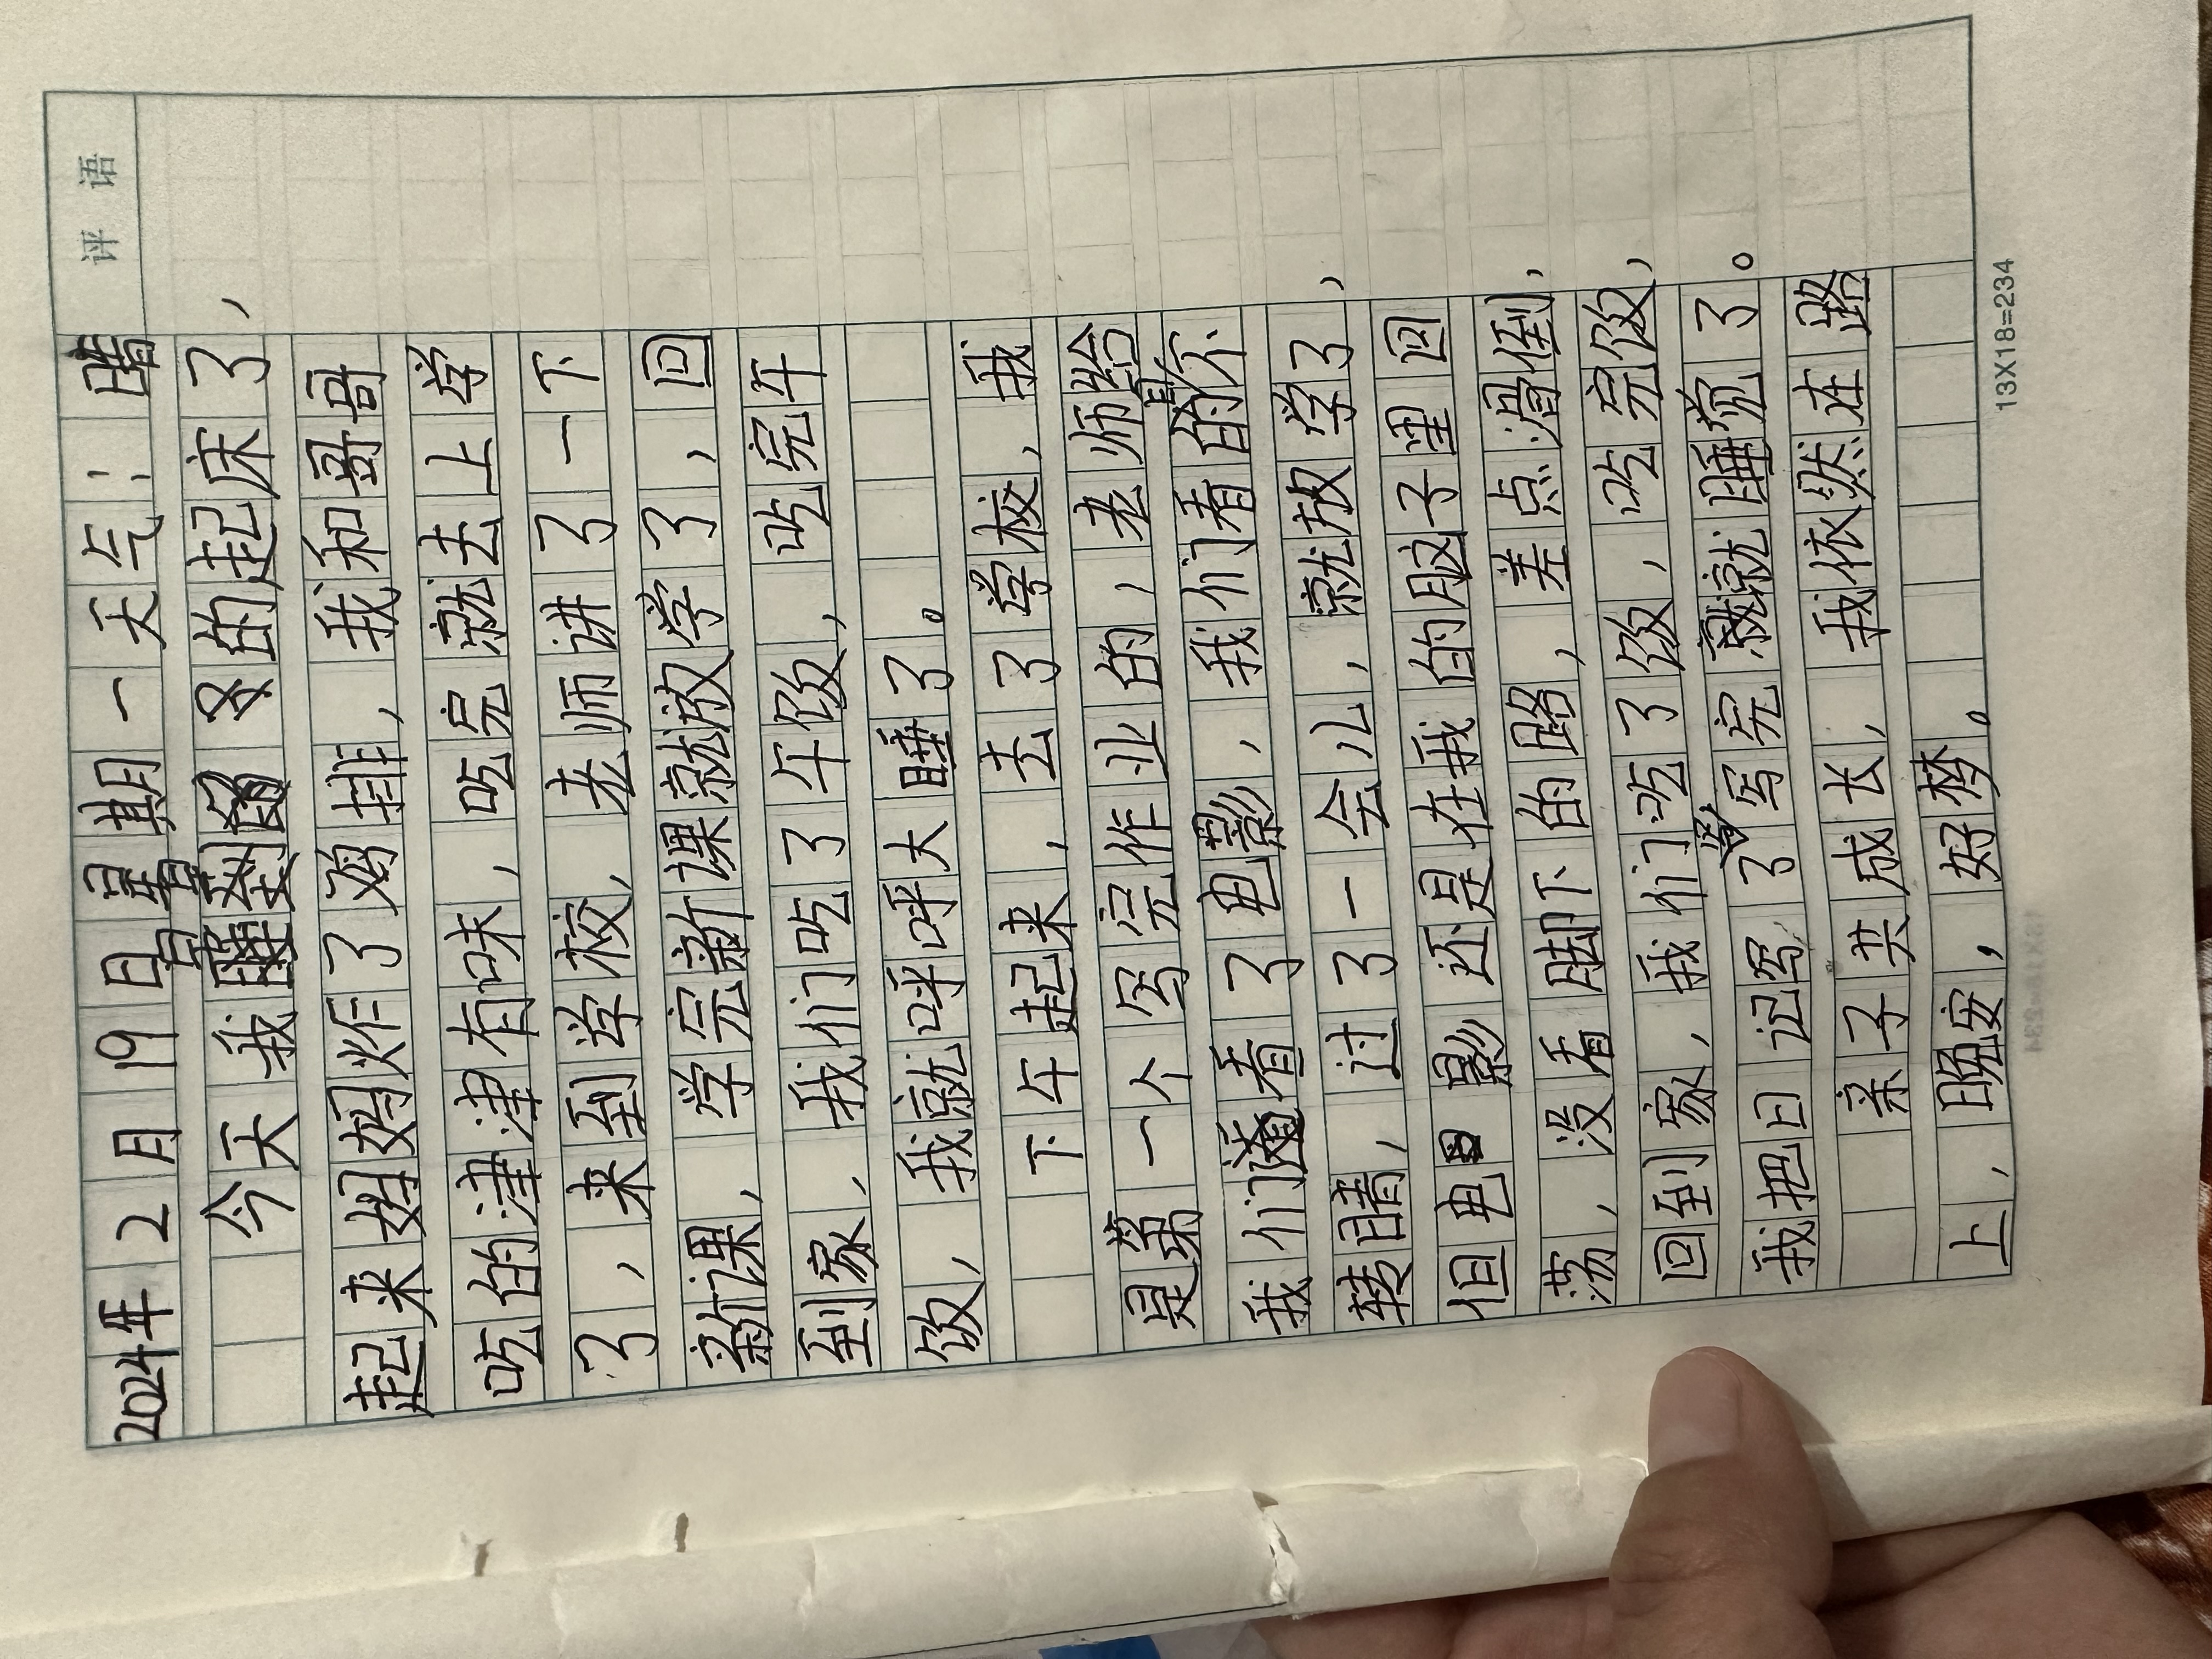 评 语
2024年2月19日星期一天气:晴
今天我早早的起床了,
起来妈妈炸了鸡排,我和哥哥
吃的津津有味,吃完就去上学
了,来到学校,老师讲了一下
新课,学完新课就放学了,回
到家,我们吃了午饭,吃完午
饭,我就呼呼大睡了。
下午起来,去了学校,我
是第一个写完作业的,老师给
我们看了电影,我们看的是《不
转睛,过了一会儿,就放学了,
但电影还是在我的脑子里回
荡,没看脚下的路,差点滑倒,
回到家,我们吃了饭,吃完饭,
我把日记写了,写完就睡觉了。
亲子共成长,我依然在路
上,晚安,好梦。
13X18=234